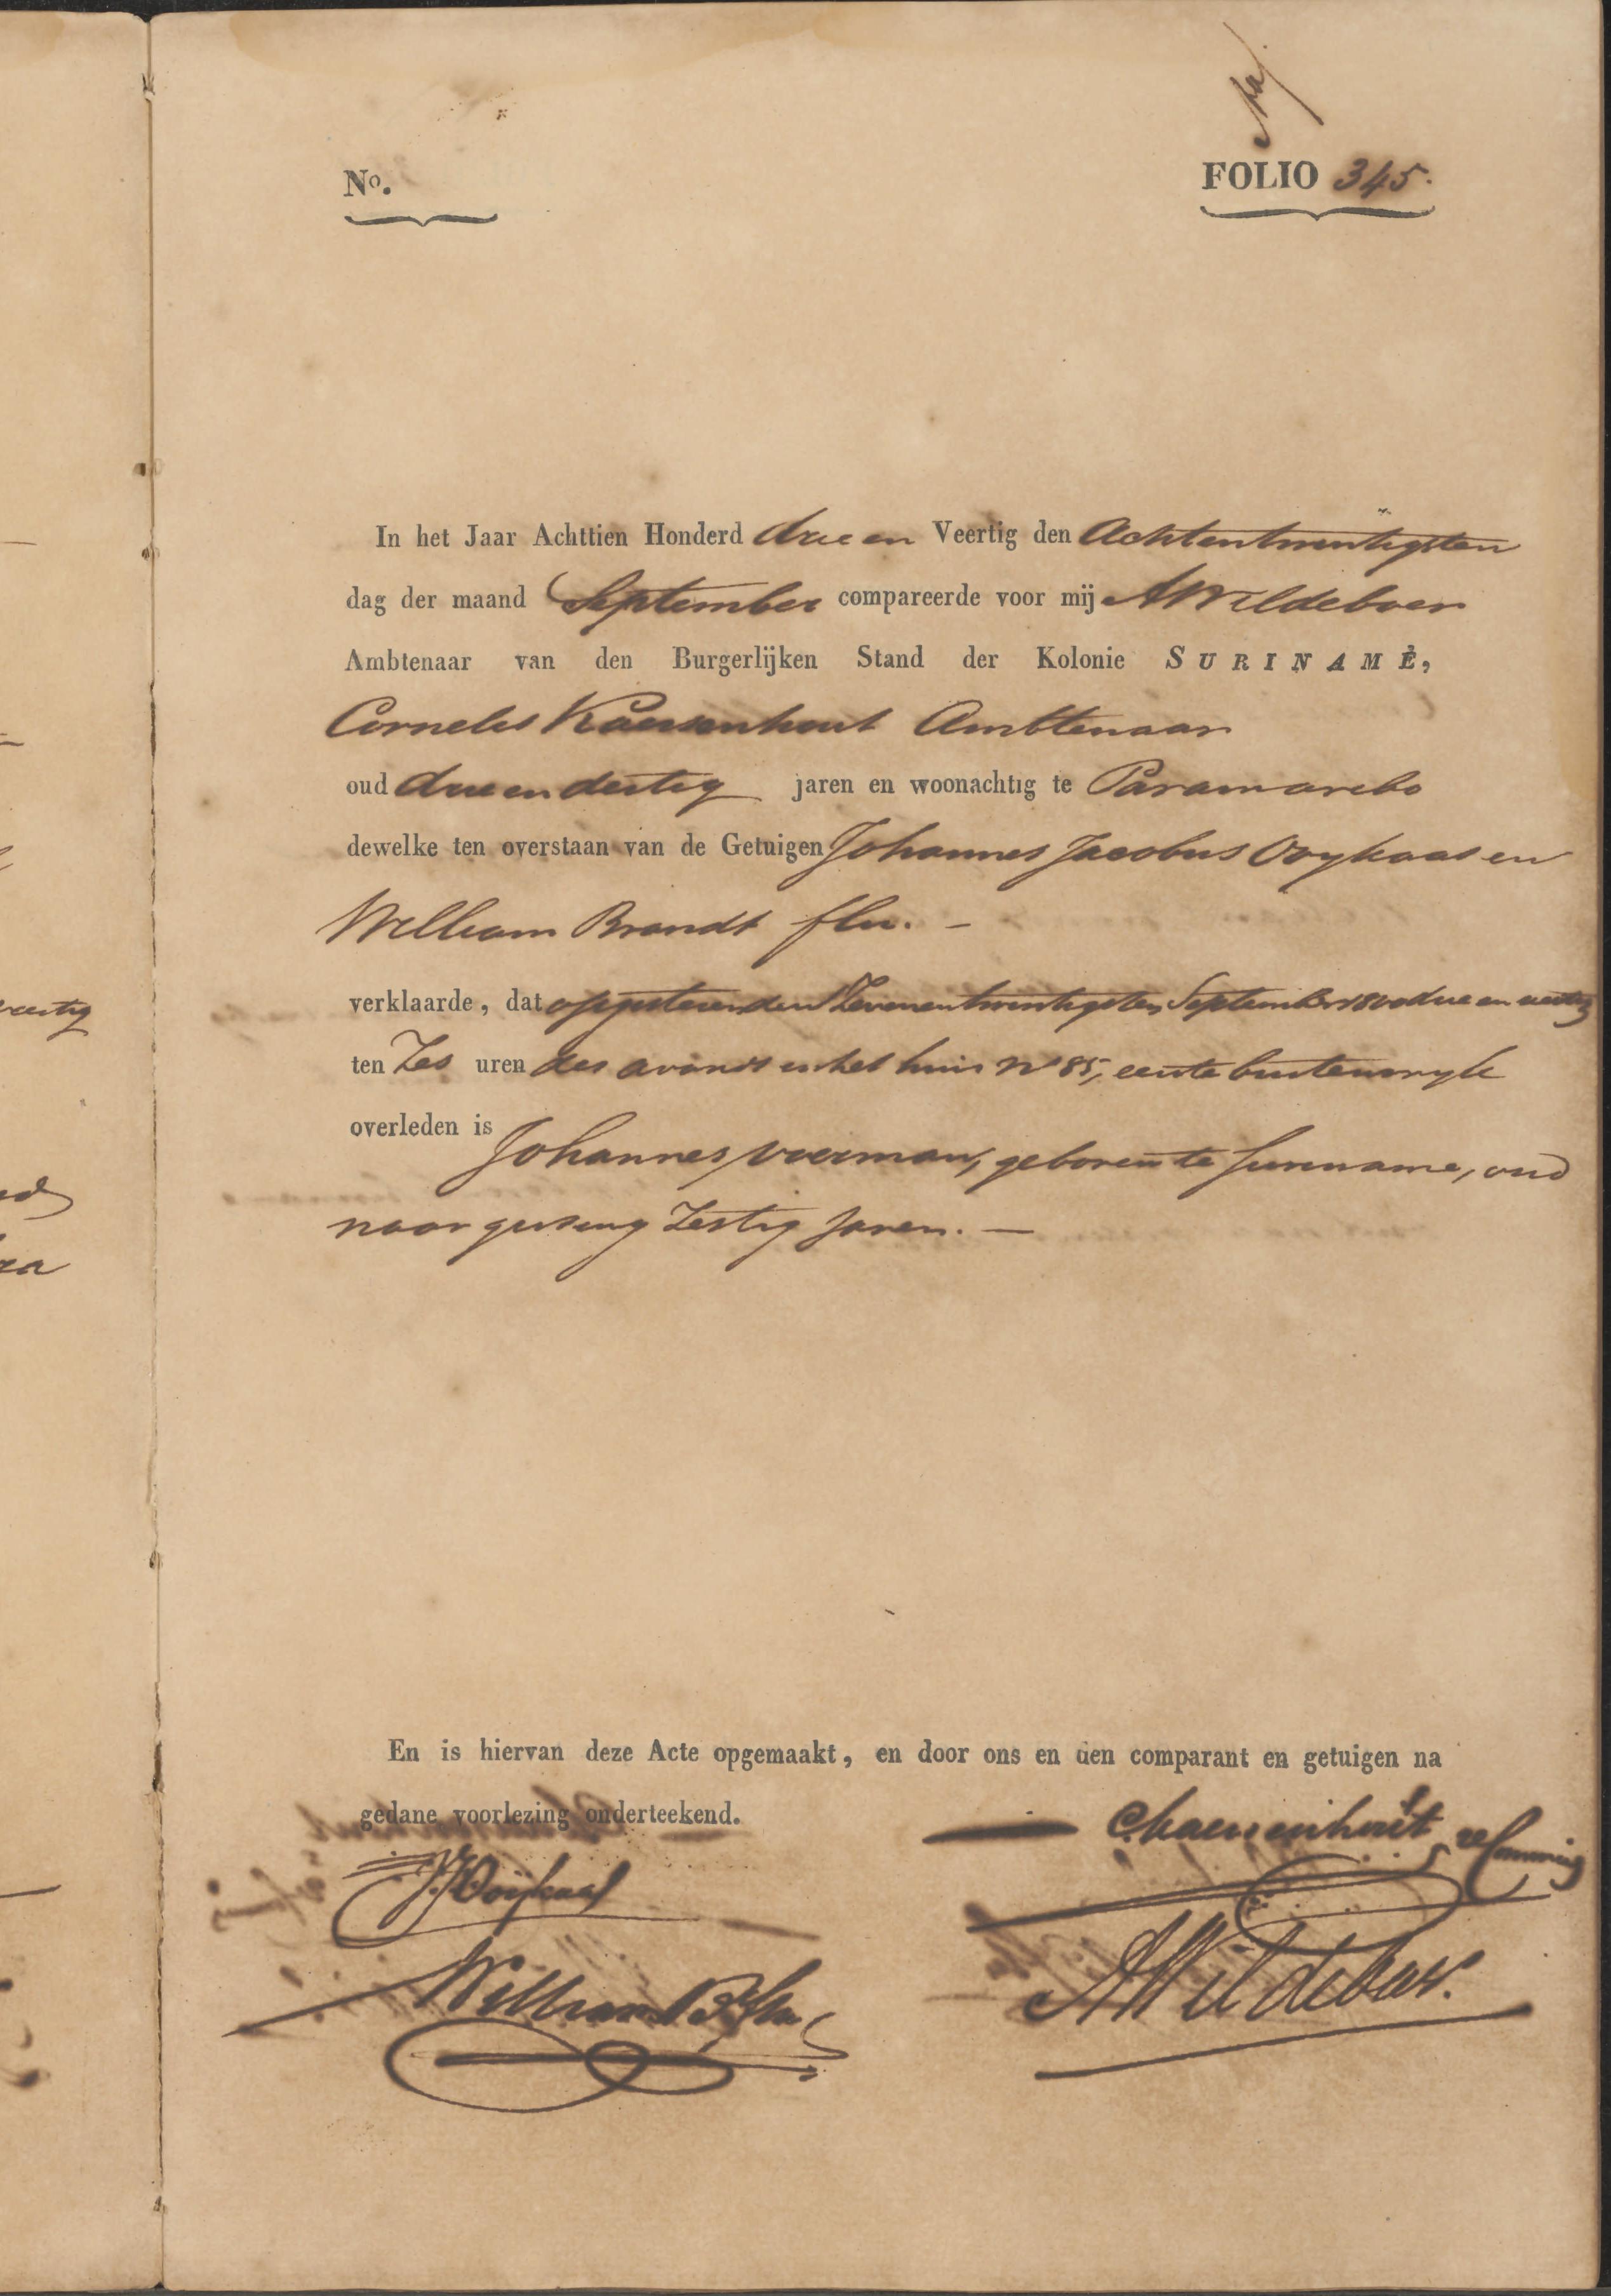 FOLIO 345.
No.
In het Jaar Achttien Honderd drie en Veertig den Achtentwintigsten
dag der maand September compareerde voor mij A Wildeboer
Ambtenaar van den Burgerlijken Stand der Kolonie SURINAME,
Cornelis Kaersenhout Ambtenaar
oud drie en dertig jaren en woonachtig te Paramaribo
dewelke ten overstaan van de Getuigen Johannes Jacobus Ooykaas en
William Brandt flu. —
verklaarde, dat op gisteren den Zevenentwintigsten September 1800 drie en veertig
ten Zes uren des avonds in het huis No 85, eerste buitenwyk
overleden is
Johannes Veerman, geboren te Suriname, oud
naar gissing Zestig Jaren. —
En is hiervan deze Acte opgemaakt, en door ons en den comparant en getuigen na
gedane voorlezing onderteekend.
C. Kaersenhout
JJ Ooijkaas
William B flu
A Wildeboer.
veertig